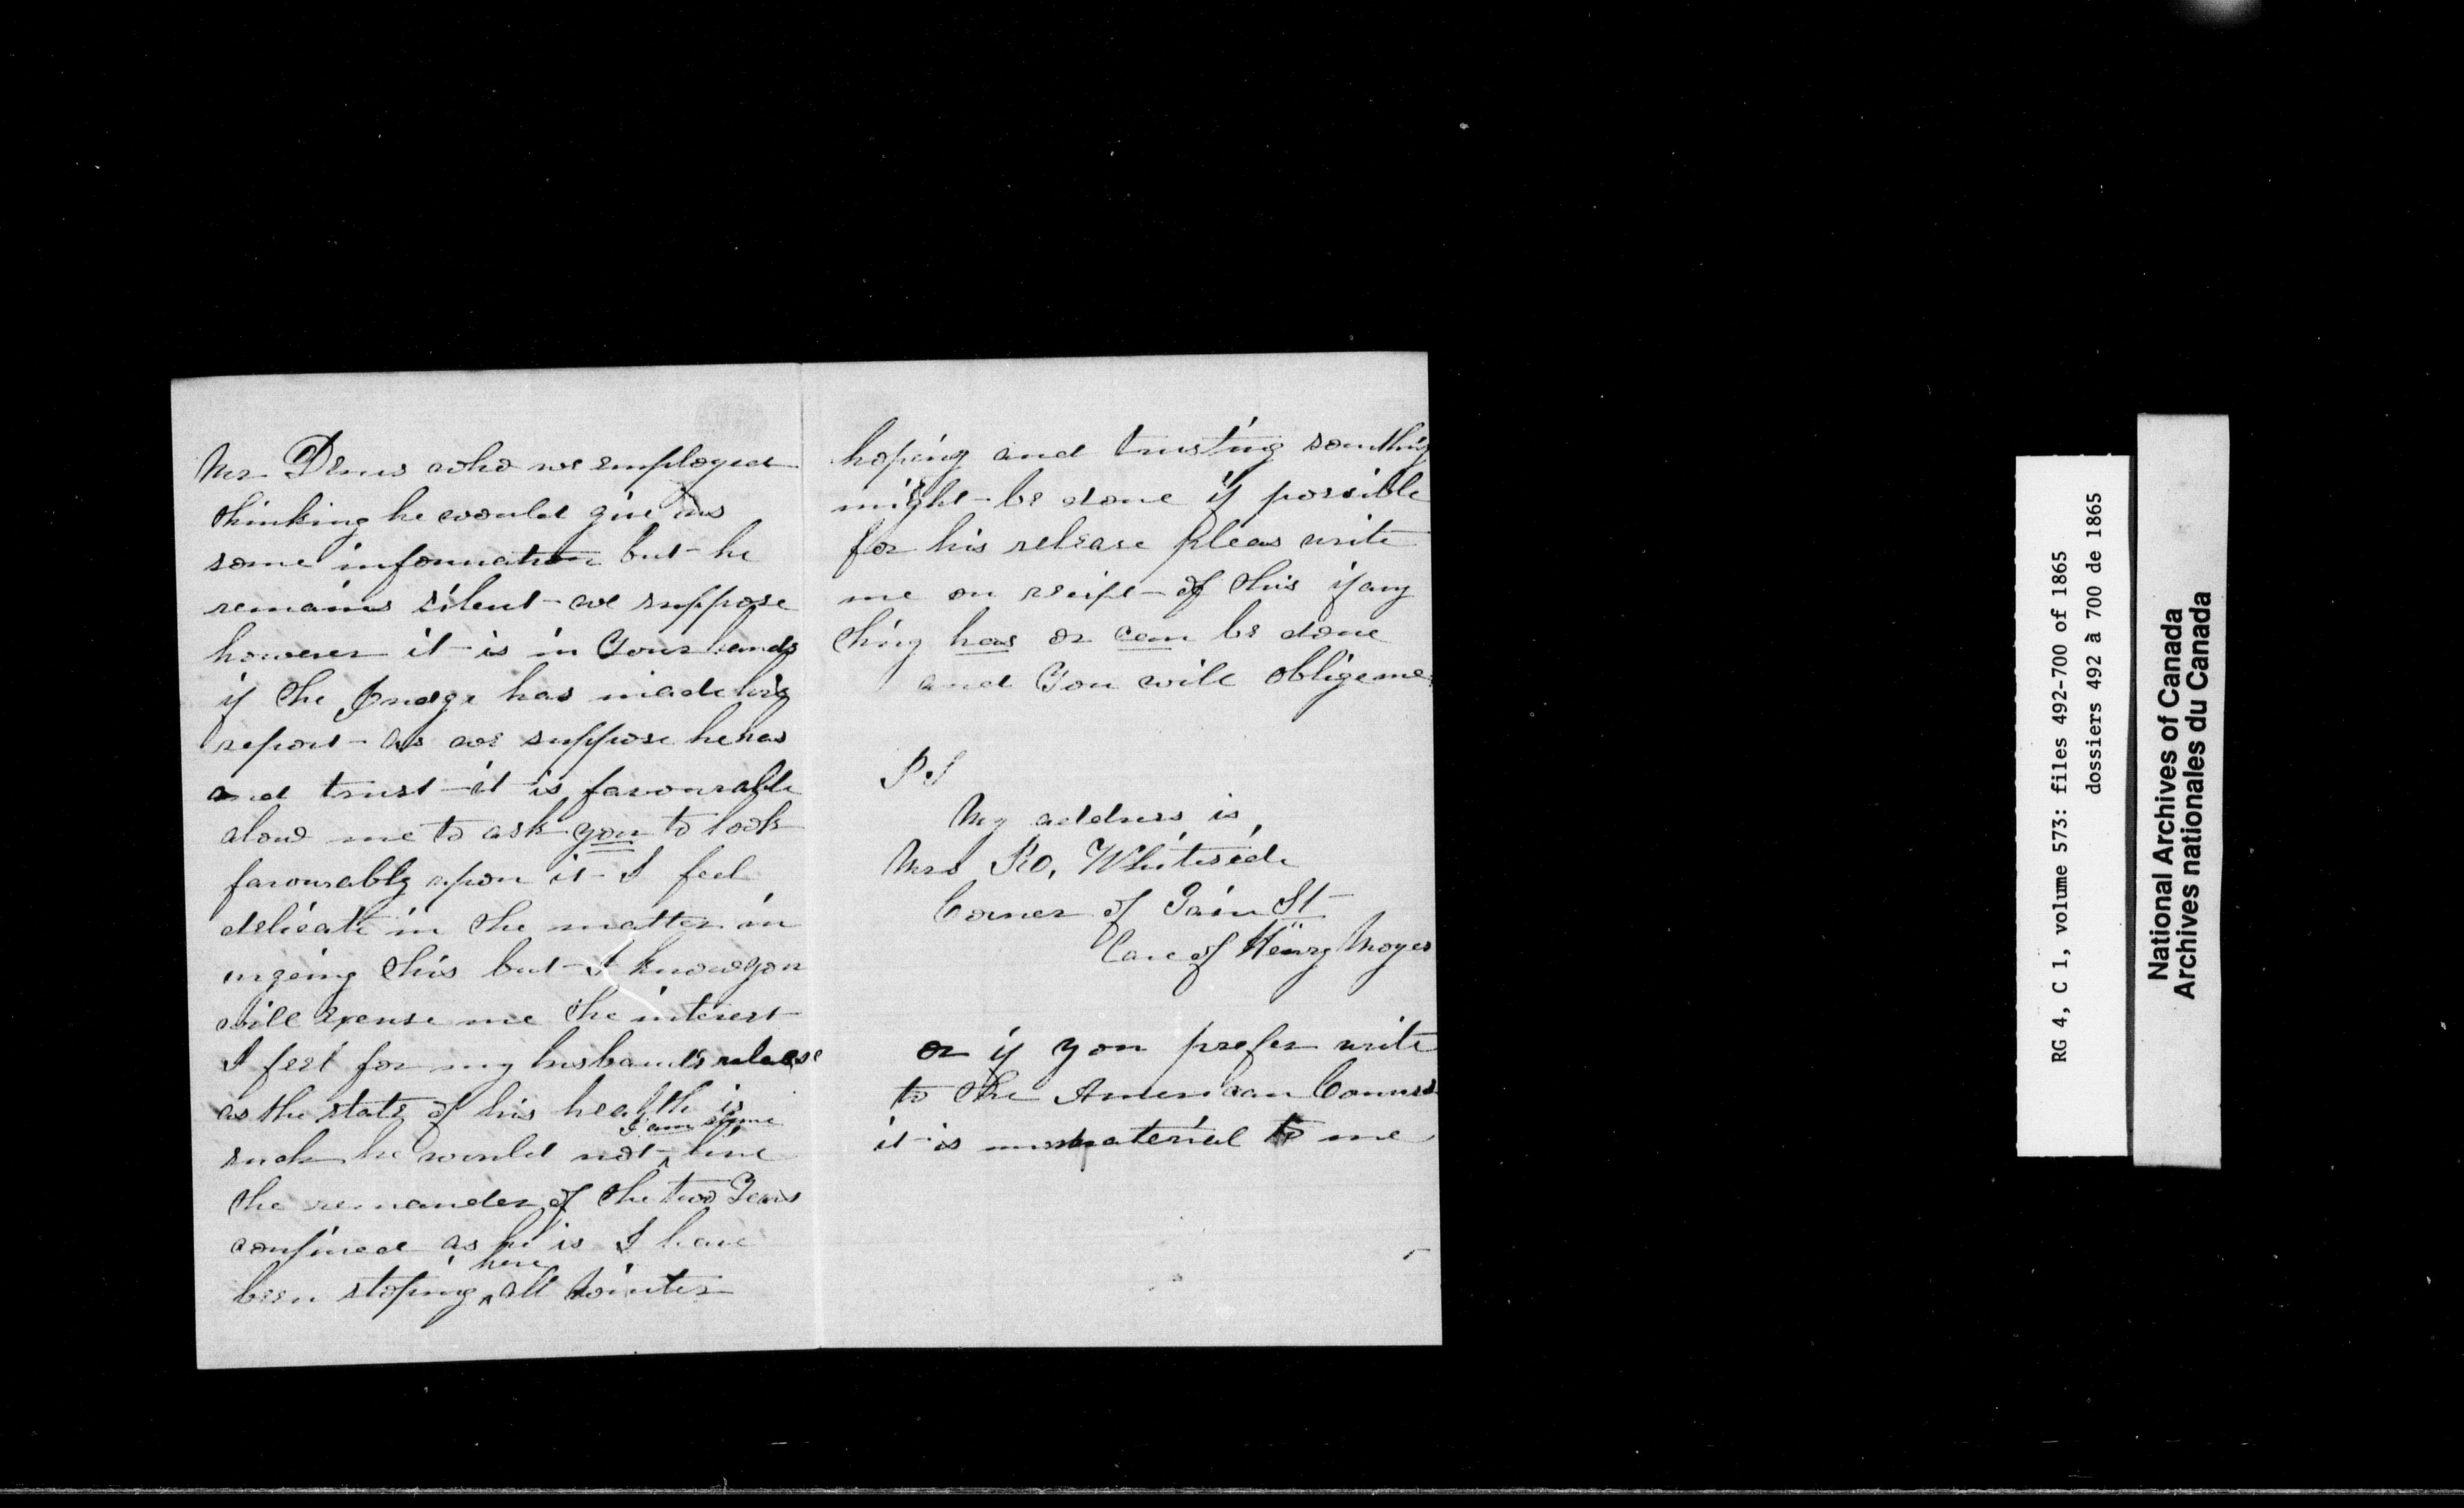 Mr. Denis who we employed
thinking he would give us
some information but he
remains silent - we suppose
however it is in Your hands
if the Judge has made his
report - as we suppose he has
and trust it is favourable
alow me to ask you to look
favourably upon it I feel
delicate in the matter in
urgeing this but I know you
will excuse me the interest
I feel for my husbands release
as the state of his health is
I am shure
such he would not live
the remander of the two Years
confined as he is I have
here
been stoping all winter
hoping and trusting somthing
might be done if possible
for his release Pleas write
me on recipt of this if any
thing has or can be done
and You will oblige me
PS
My address is,
Mrs Ro, Whiteside
Corner of St
Care of Henry Moyes
or if you prefer write
to the American Counsel
it is immaterial to me
RG 4, C 1, volume 573: files 492-700 of 1865
dossiers 492 à 700 de 1865
National Archives of Canada
Archives nationales du Canada